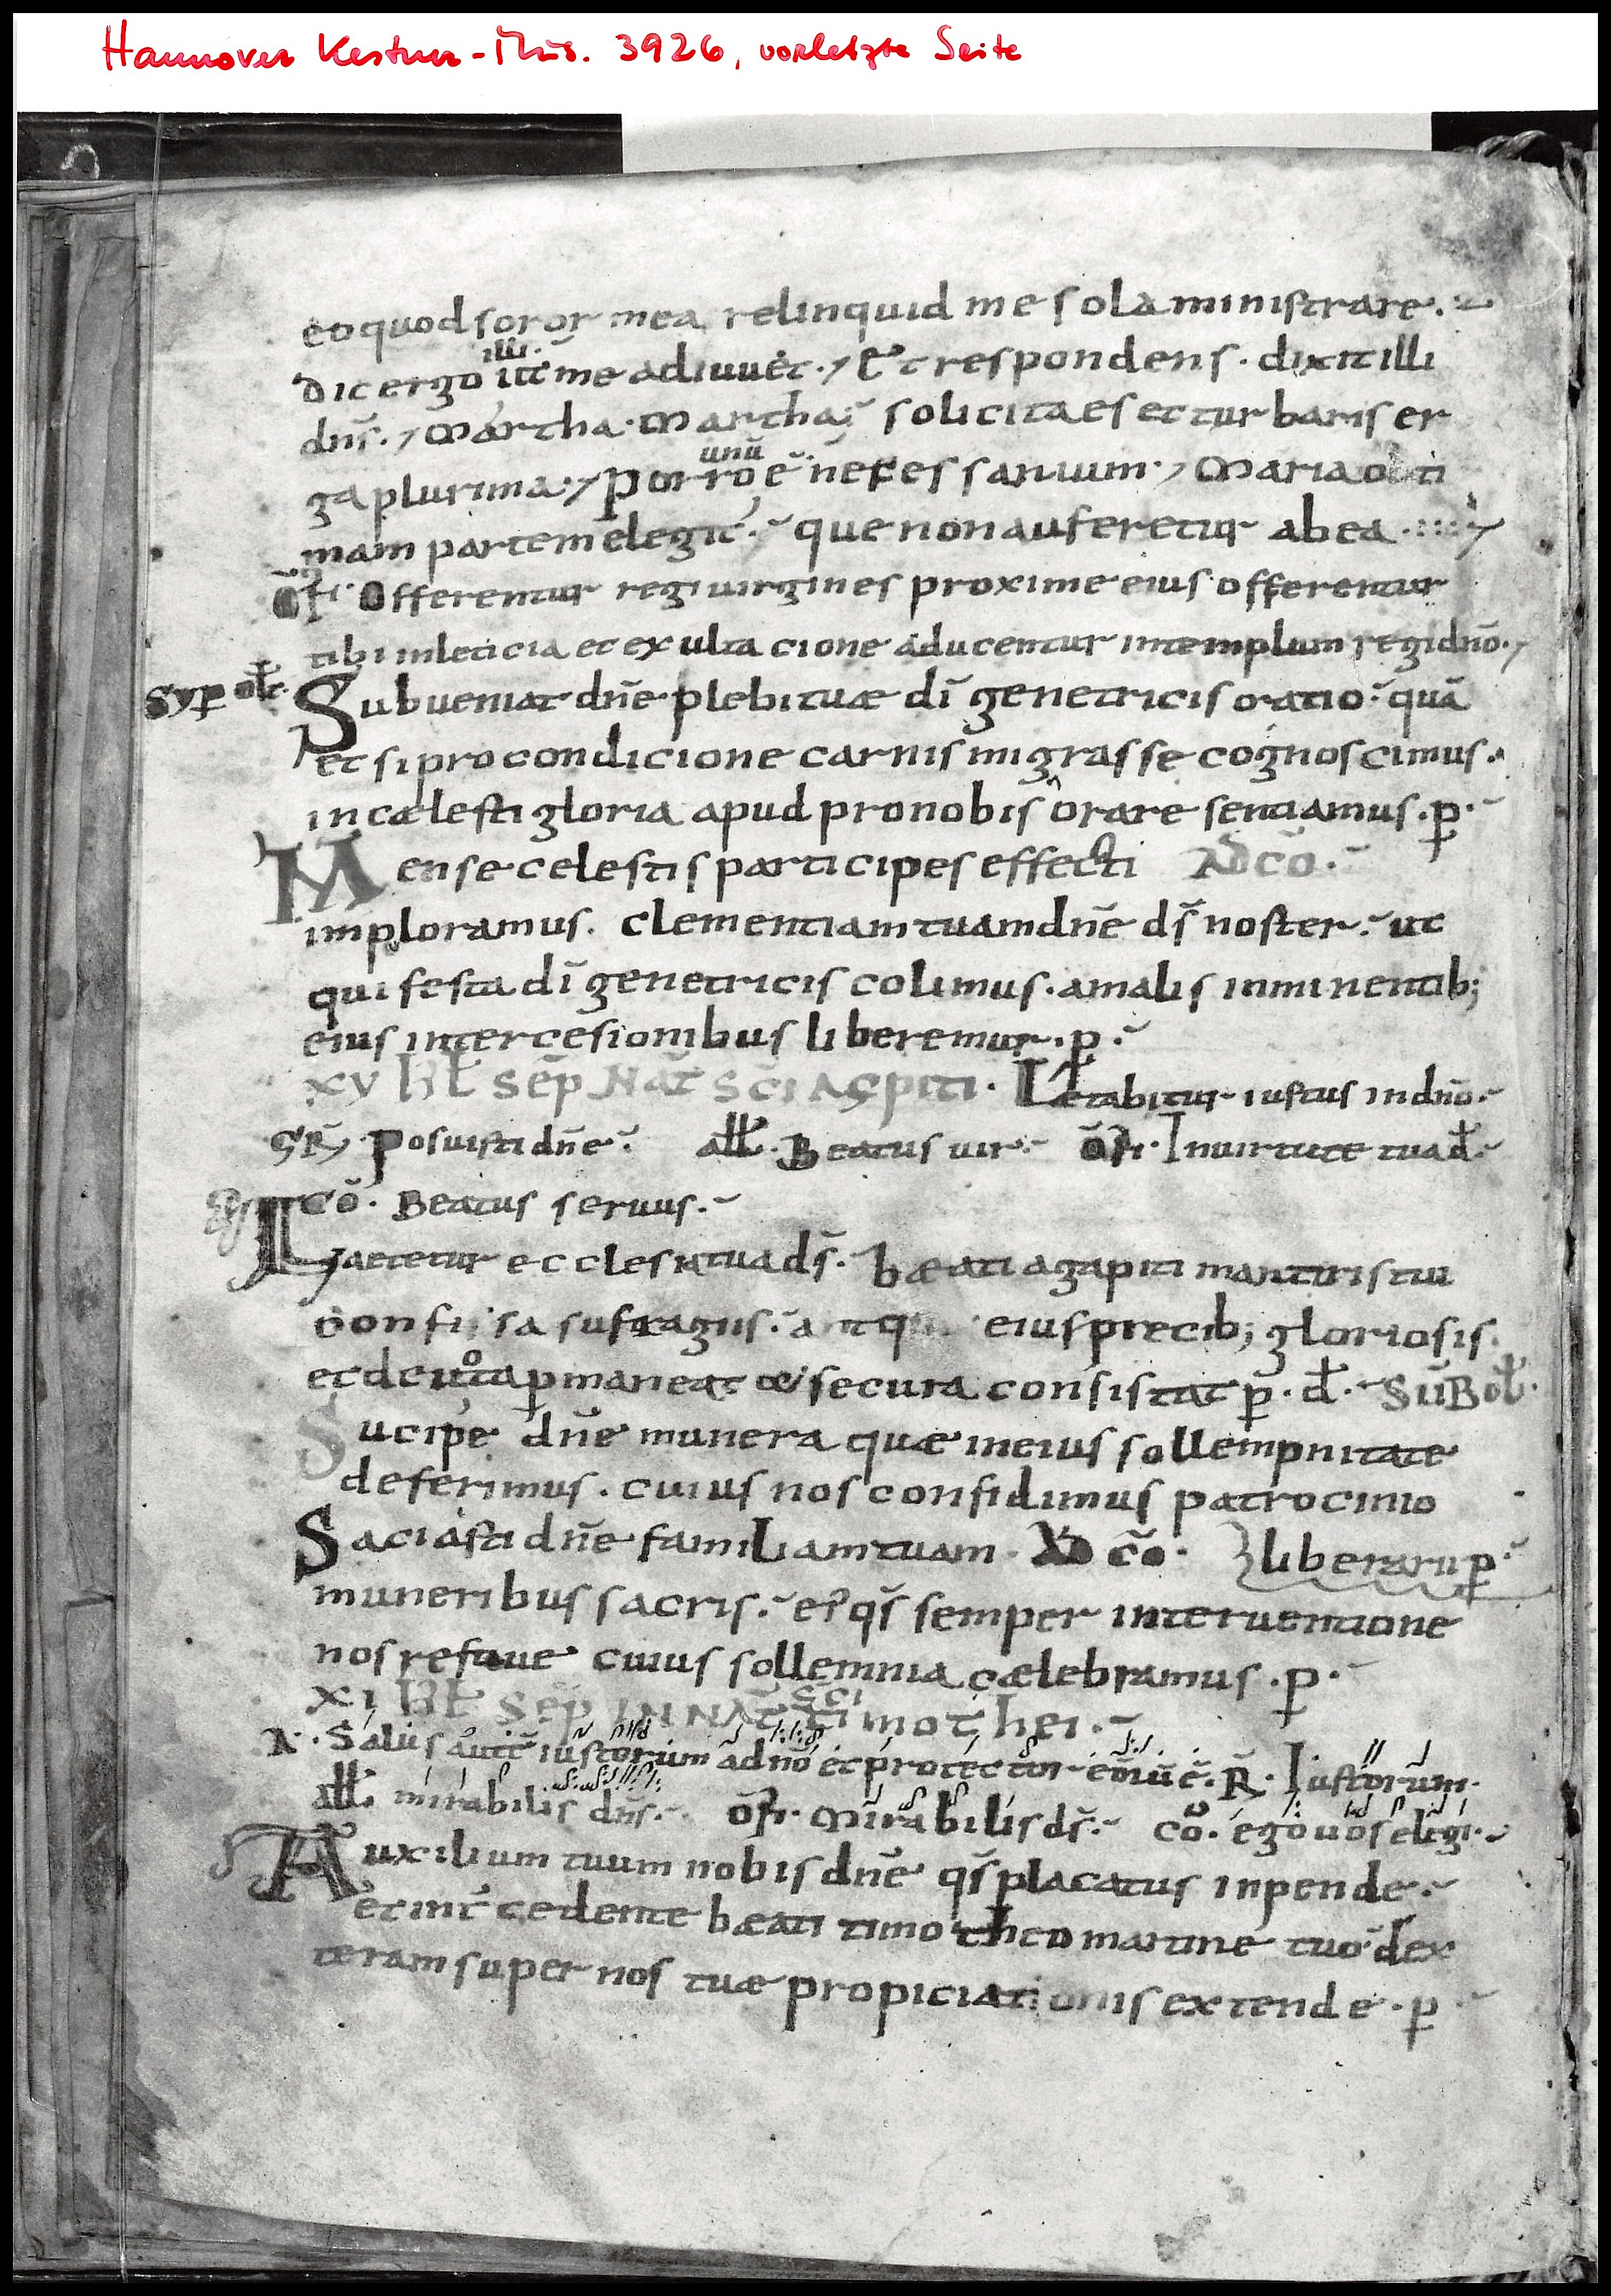 Hannover Kestner-Mus. 3926, vorletzte Seite
eo quod soror mea relinquid me sola ministrare.
illi.
Dic ergo ut̄ me adiuuet. Et respondens. dixit illi
dn̄s. Martha. Martha; solicita es et turbaris er
unū
ga plurima. Porro ē necessarium. Maria opti
mam partem elegit. que non auferetur ab ea.
ōf. Offerentur regi uirgines proxime eius offerentur
tibi in leticia et exultacione aducentur in templum regi dn̄o.
Syp obl̄t. Subueniat dn̄e plebi tuæ dī genetricis oratio. quā
et si pro condicione carnis migrasse cognoscimus.
in cælesti gloria apud pro nobis orare sentiamus. p̄.
Mense celestis participes effecti AD CŌ.
imploramus. clementiam tuam dn̄e ds̄ noster. ut
qui festa dī genetricis colimus. a malis inminentib;
eius intercesionibus liberemur. p̄.
XV KL SEP̄ NAT̄ SC̄I AGPITI. Lætabitur iustus in dn̄o.
GR̄ Posuisti dn̄e. all̄. Beatus uir. ōf. In uirtute tua d̄.
CŌ. Beatus seruus.
Laetetur ecclesia tua ds̄. bæati agapiti martiris tui
confisa sufragiis. atque eius precib; gloriosis.
et deuota p̄maneat et secura consistat p̄. d̄. SŪB obl̄.
Sucipe dn̄e munera quæ in eius sollempnitate
deferimus. cuius nos confidimus patrocinio
Saciasti dn̄e familiam tuam. AD CŌ. liberari p̄
muneribus sacris. eiꝰ qs̄ semper interuentione
nos refoue cuius sollemnia cælebramus. p̄.
XI KL SEP̄ IN NAT̄ SC̄I Timothei.
A. Salus autē iustorum a dn̄o et protector eorū ē. R̄. Iustorum.
all̄. mirabilis dn̄s. ōf. Mirabilis ds̄. cō. ego uos elegi.
Auxilium tuum nobis dn̄e qs̄ placatus inpende.
et int̄cedente bæati timotheo martire tuo dex
teram super nos tuæ propiciationis extende. p̄